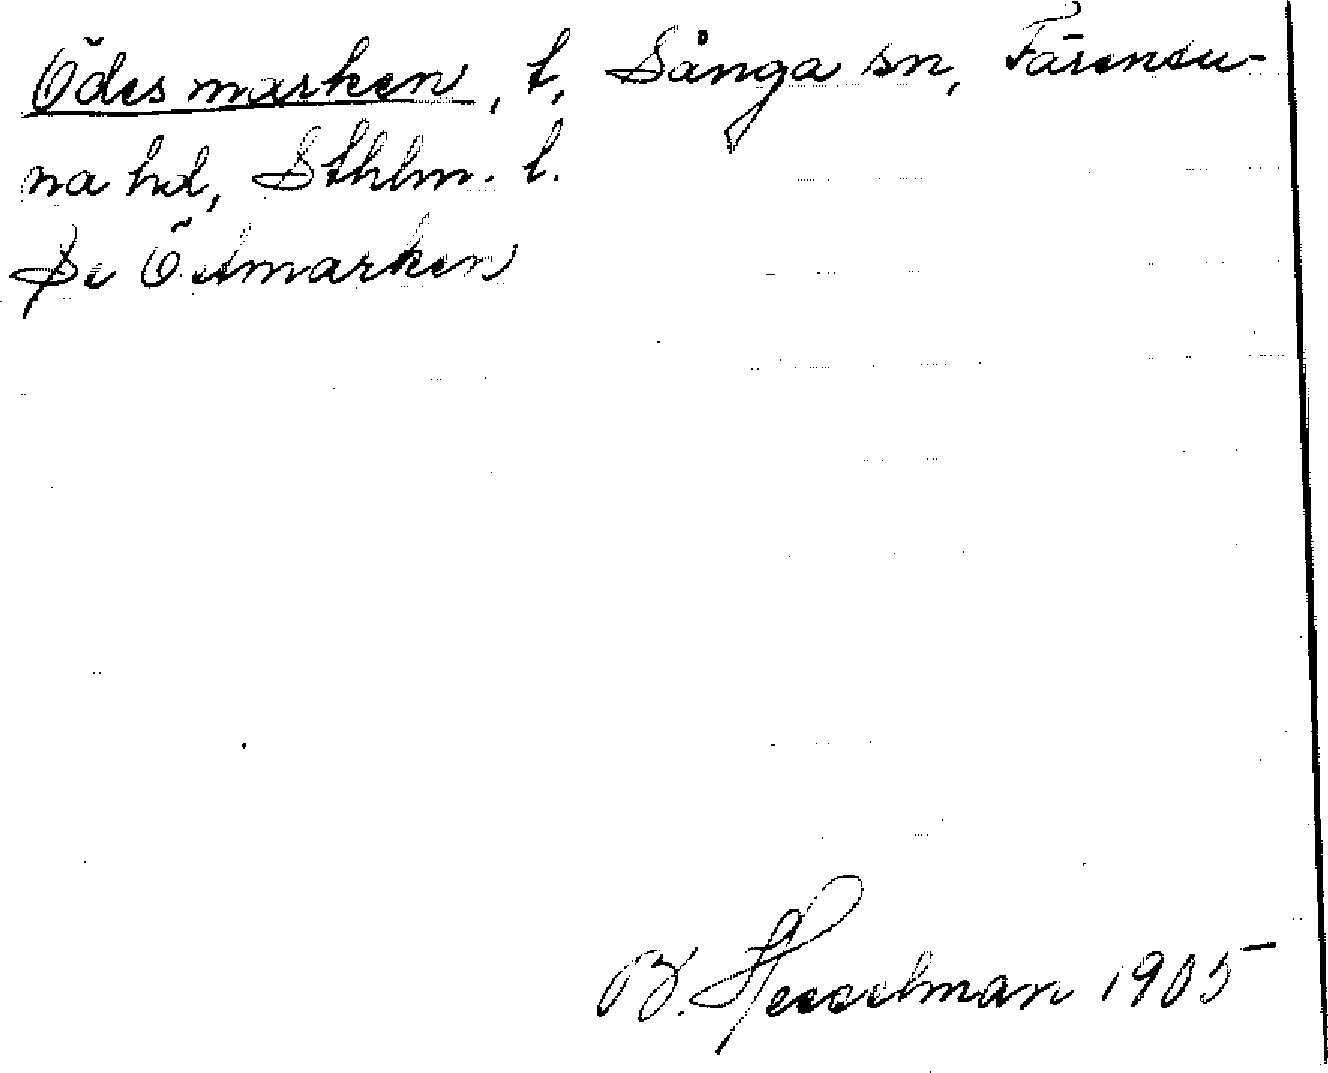 Ödesmarken, t, Sånga sn, Färentu-
na hd, Sthlm. l.
Se Ödmarken
B. Hesselman 1905